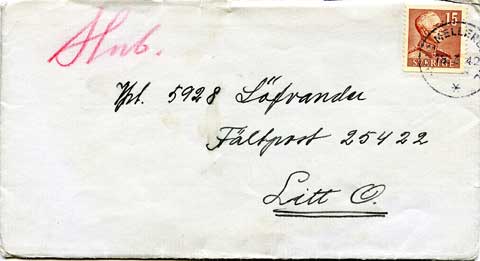 Hnb.
15
SVERIGE
MELLE
42
Vpl. 5928 Löfvander
Fältpost 25422
Litt O.